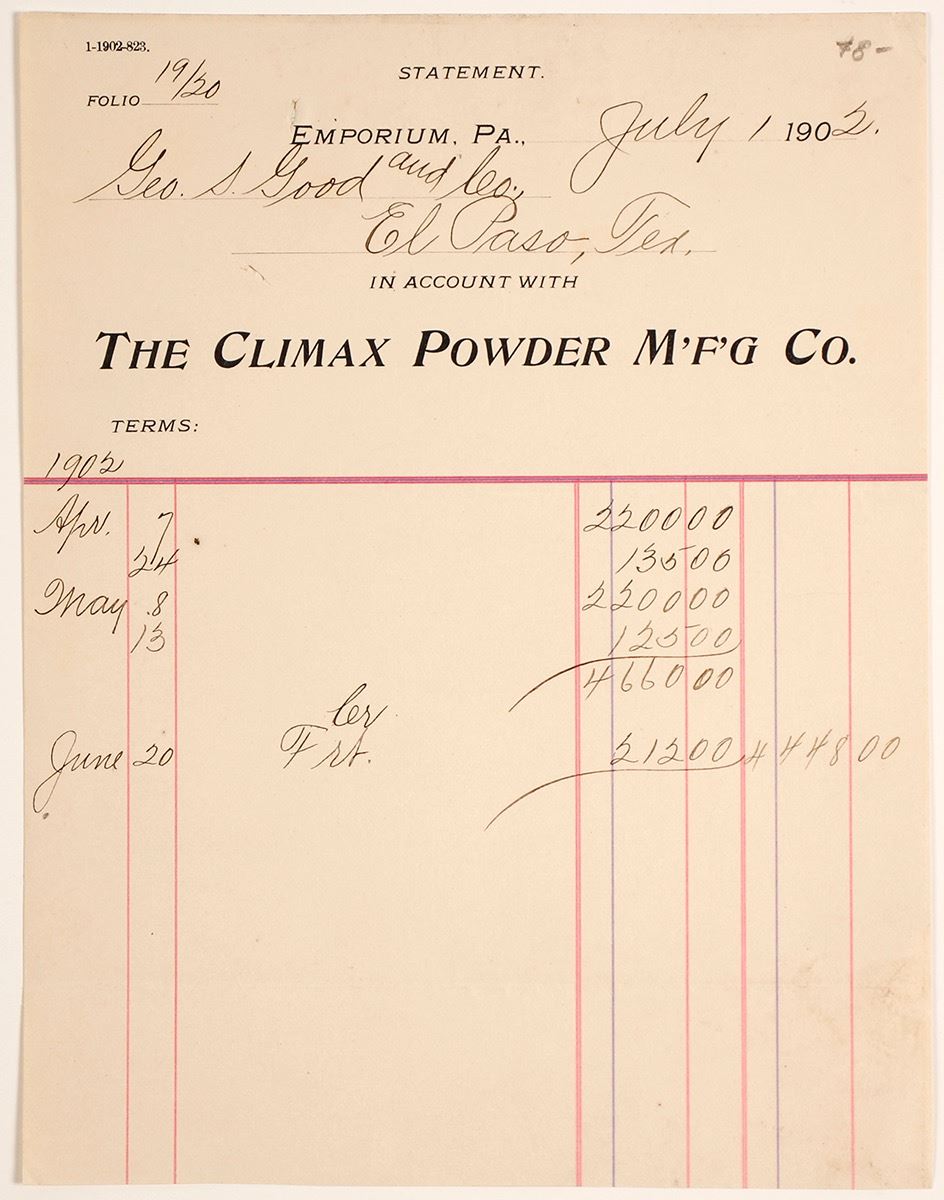 1-1902-823.
78-
STATEMENT.
FOLIO 19/20
EMPORIUM, PA., July 1 1902.
Geo. S. Good and Co.,
El Paso, Tex.
IN ACCOUNT WITH
THE CLIMAX POWDER M'F'G CO.
TERMS:
1902
Apr. 7 220000
24 13500
May 8 220000
13 12500
466000
Cr
June 20 Frt. 21200 444800